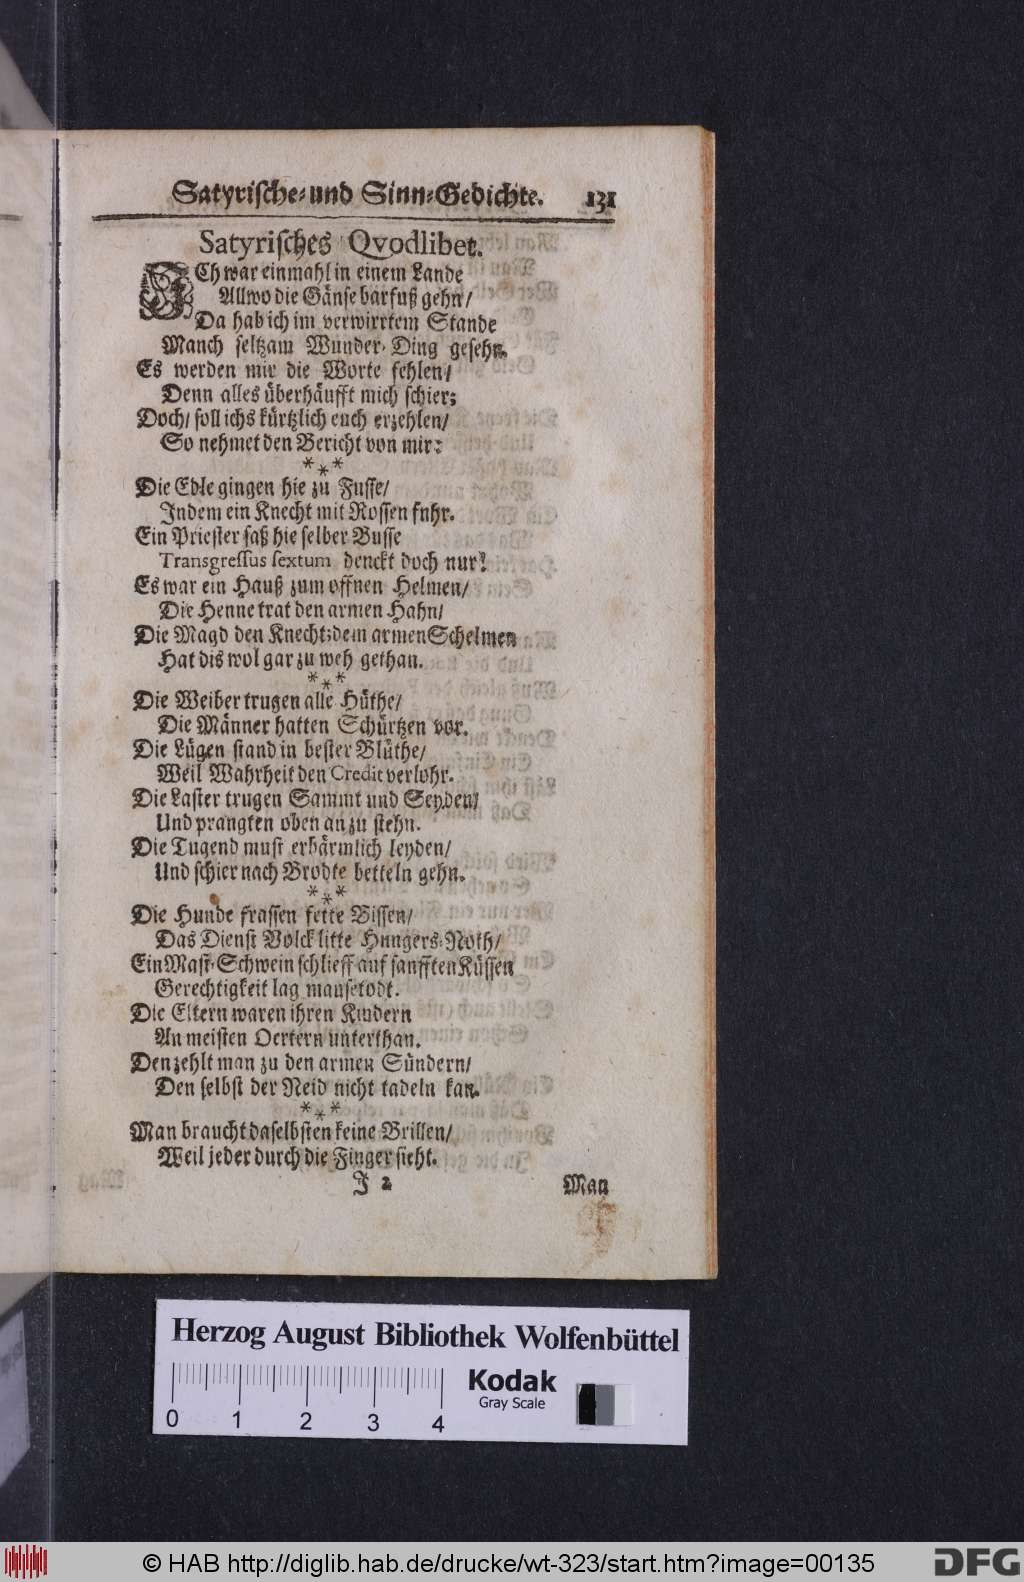 Satyrische-und Sinn-Gedichte. 131
Satyrisches Qvodlibet.
ICh war einmahl in einem Lande
Allwo die Gänse barfuß gehn/
Da hab ich im verwirrtem Stande
Manch seltzam Wunder-Ding gesehn.
Es werden mir die Worte fehlen/
Denn alles überhäufft mich schier;
Doch/ soll ichs kürtzlich euch erzehlen/
So nehmet den Bericht von mir:
***
Die Edle gingen hie zu Fusse/
Indem ein Knecht mit Rossen fuhr.
Ein Priester saß hie selber Busse
Transgressus sextum denckt doch nur!
Es war ein Hauß zum offnen Helmen/
Die Henne trat den armen Hahn/
Die Magd den Knecht; dem armen Schelmen
Hat dis wol gar zu weh gethan.
***
Die Weiber trugen alle Hüthe/
Die Männer hatten Schürtzen vor.
Die Lügen stand in bester Blüthe/
Weil Wahrheit den Credit verlohr.
Die Laster trugen Sammt und Seyden/
Und prangten oben an zu stehn.
Die Tugend must erbärmlich leyden/
Und schier nach Brodte betteln gehn.
***
Die Hunde frassen fette Bissen/
Das Dienst Volck litte Hungers-Noth/
Ein Mast-Schwein schlieff auf sanfften Küssen
Gerechtigkeit lag mausetodt.
Die Eltern waren ihren Kindern
An meisten Oertern unterthan.
Den zehlt man zu den armen Sündern/
Den selbst der Neid nicht tadeln kan.
***
Man braucht daselbsten keine Brillen/
Weil jeder durch die Finger sieht.
J 2 Man
Herzog August Bibliothek Wolfenbüttel
0 1 2 3 4
Kodak
Gray Scale
© HAB http://diglib.hab.de/drucke/wt-323/start.htm?image=00135
DFG